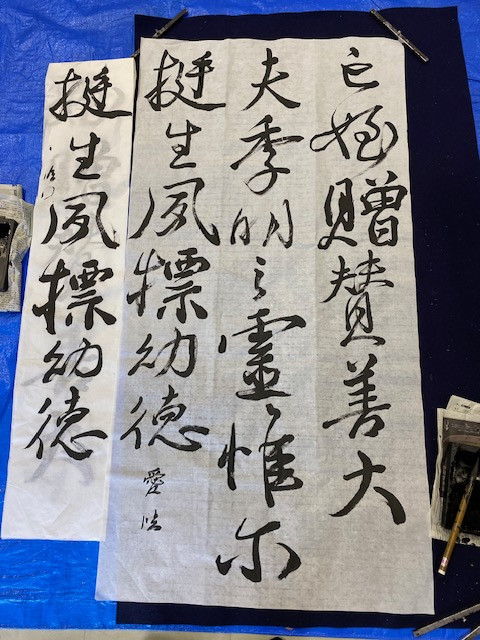 亡姪贈賛善大
夫季明之靈惟尓
挺生夙標幼徳
愛
挺生夙標幼徳